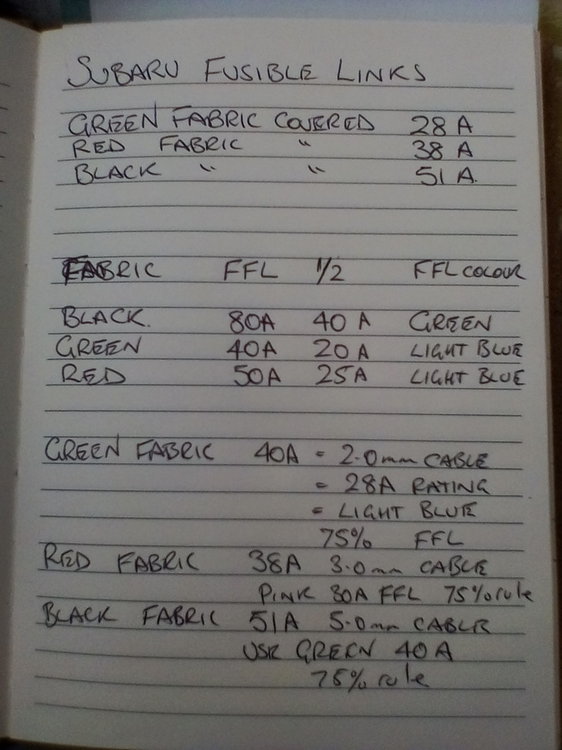 SUBARU FUSIBLE LINKS
GREEN FABRIC COVERED 28 A
RED FABRIC " 38 A
BLACK " " 51 A.
FABRIC FFL 1/2 FFL COLOUR
BLACK. 80A 40 A GREEN
GREEN 40A 20A LIGHT BLUE
RED 50A 25A LIGHT BLUE
GREEN FABRIC 40A = 2.0mm CABLE
= 28A RATING
= LIGHT BLUE
75% FFL
RED FABRIC 38A 3.0mm CABLE
PINK 30A FFL 75% rule
BLACK FABRIC 51A 5.0mm CABLE
USE GREEN 40A
75% rule